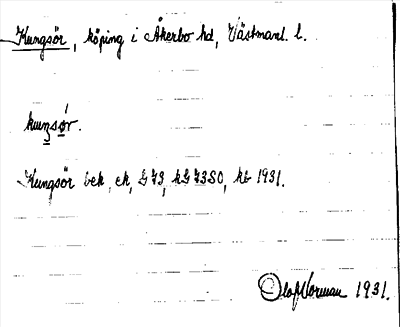 Kungsör, köping i Åkerbo hd, Västmanl. l.
kuŋsö́r.
Kungsör bek, ek, G73, kG73SO, kb 1931.
Olof Norman 1931.